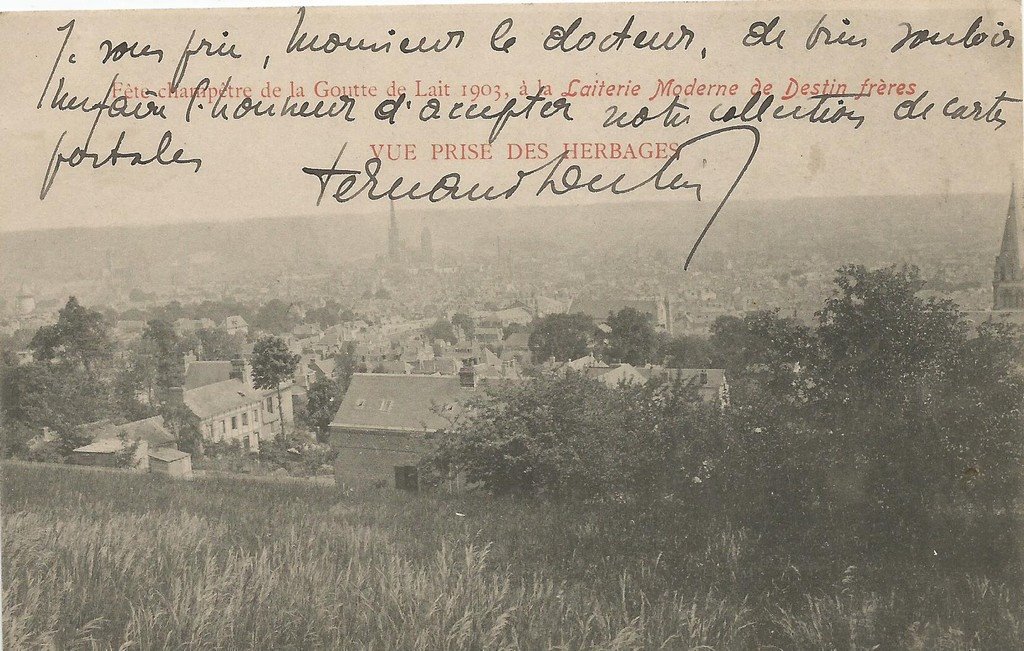 Je vous prie, Monsieur le docteur, de bien vouloir
Fête champêtre de la Goutte de Lait 1903, à la Laiterie Moderne de Destin frères
me faire l'honneur d'accepter notre collection de cartes
postales
VUE PRISE DES HERBAGES
Fernand Destin